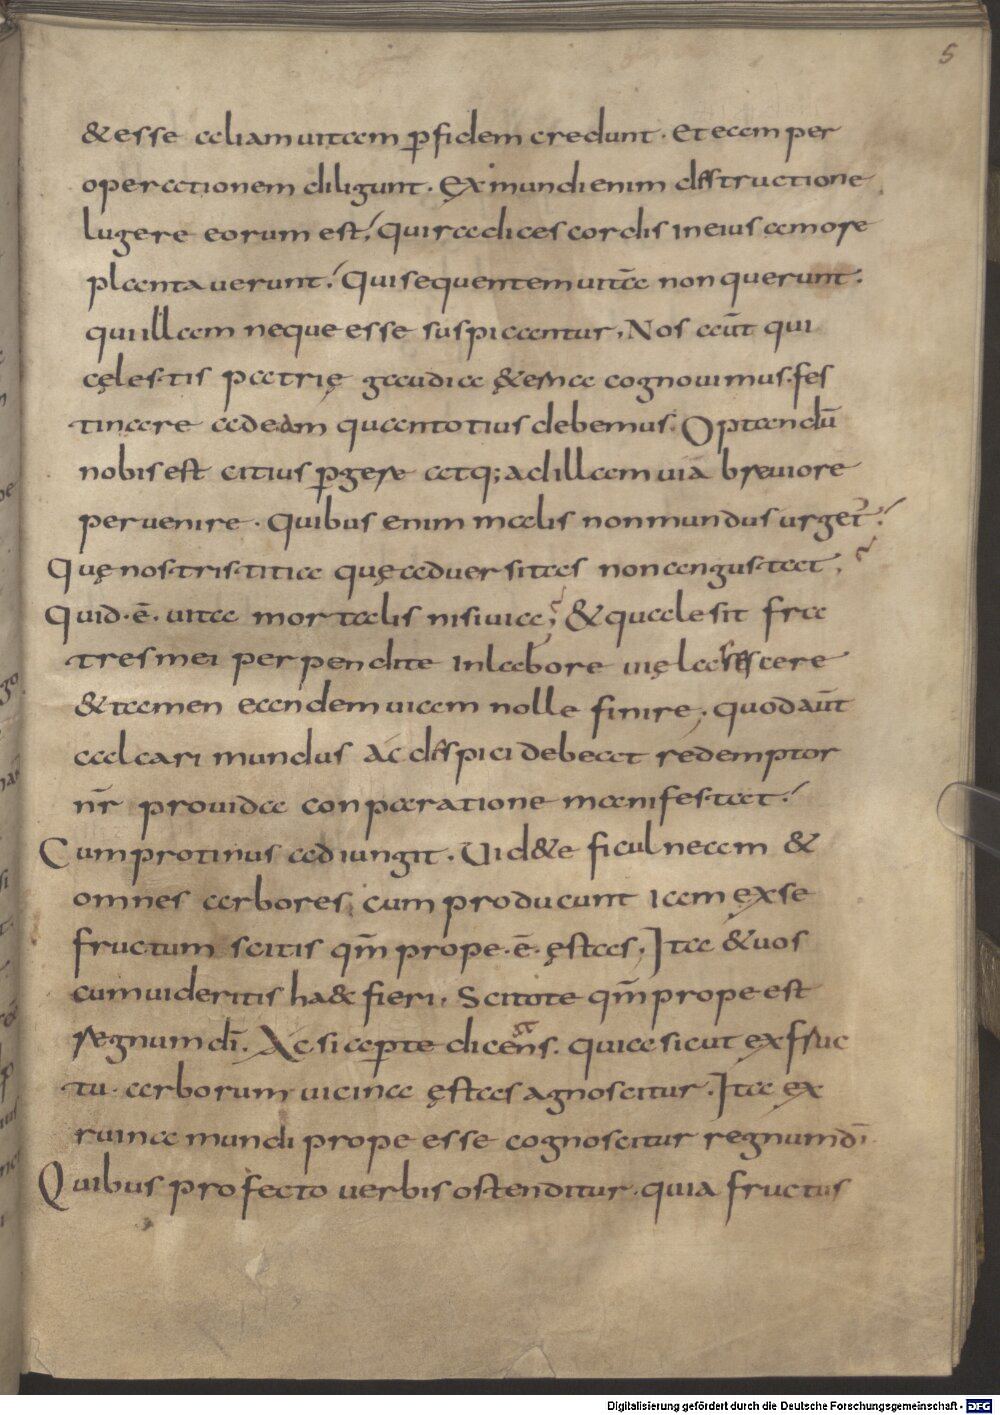 5
& esse aliam uitam ꝑ fidem credunt · et eam per
operationem diligunt · Ex mundi enim destructione
lugere eorum est, qui radices cordis in eius amore
plantauerunt; Qui sequentem uitā non querunt;
qui illam neque esse suspicantur, Nos aūt qui
cęlestis patrię gaudia & erna cognouimus · fes
tinare ad eam quantotius debemus · Optandū
nobis est citius ꝑgere atq; ad illam uia breuiore
peruenire · Quibus enim malis non mundus urget?
Quę nos tristitia quę aduersitas non angustat,
Quid · ē · uita mortalis nisi uia; & quale sit fra
tres mei perpendite in labore uię lassescere
& tamen eandem uiam nolle finire, quod aūt
calcari mundus ac despici debeat redemptor
nr̄ prouida conparatione manifestat;
Cum protinus adiungit · Uid&e ficulneam &
omnes arbores, cum producunt iam ex se
fructum scitis qm̄ prope · ē · ęstas, Ita & uos
cum uideritis ha&c fieri, Scitote qm̄ prope est
regnum dī. Ac si aperte dicens · quia sicut ex fruc
tu arborum uicina ęstas agnoscitur · Ita ex
ruina mundi prope esse cognoscitur regnum dī
Quibus profecto uerbis ostenditur · quia fructus
Digitalisierung gefördert durch die Deutsche Forschungsgemeinschaft - DFG